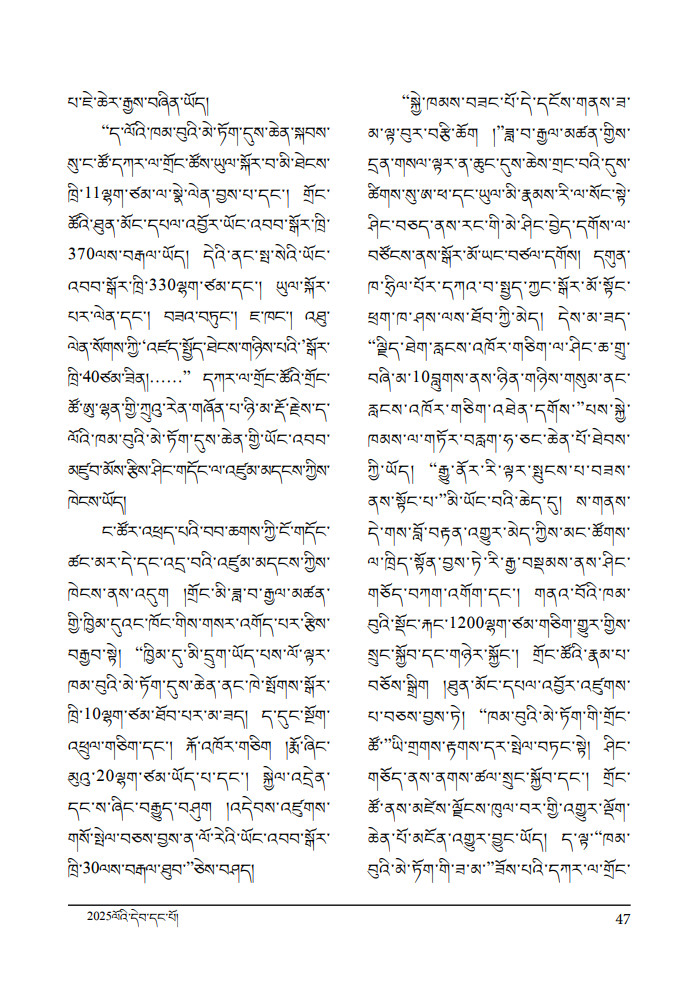 པ་ཇེ་ཆེར་རྒྱས་བཞིན་ཡོད།
“ད་ལོའི་ཁམ་བུའི་མེ་ཏོག་དུས་ཆེན་སྐབས་
སུ་ང་ཚོ་དཀར་ལ་གྲོང་ཚོས་ཡུལ་སྐོར་བ་མི་ཐེངས་
ཁྲི་11ལྷག་ཙམ་ལ་སྣེ་ལེན་བྱས་པ་དང་། གྲོང་
ཚོའི་ཐུན་མོང་དཔལ་འབྱོར་ཡོང་འབབ་སྒོར་ཁྲི་
370ལས་བརྒལ་ཡོད། དེའི་ནང་སྤ་སེའི་ཡོང་
འབབ་སྒོར་ཁྲི་330ལྷག་ཙམ་དང་། ཡུལ་སྐོར་
པར་ལེན་དང་། བཟའ་བཏུང་། ཇ་ཁང་། འཐུ་
ལེན་སོགས་ཀྱི་‘འཛད་སྤྱོད་ཐེངས་གཉིས་པའི་’སྒོར་
ཁྲི་40ཙམ་ཟིན།……” དཀར་ལ་གྲོང་ཚོའི་གྲོང་
ཚོ་ཨུ་ལྷན་གྱི་ཀྲུའུ་རེན་གཞོན་པ་ཉི་མ་རྡོ་རྗེས་ད་
ལོའི་ཁམ་བུའི་མེ་ཏོག་དུས་ཆེན་གྱི་ཡོང་འབབ་
མཛུབ་མོས་རྩིས་ཤིང་གདོང་ལ་འཛུམ་མདངས་ཀྱིས་
ཁེངས་ཡོད།
ང་ཚོར་འཕྲད་པའི་བབ་ཆགས་ཀྱི་ངོ་གདོང་
ཚང་མར་དེ་དང་འདྲ་བའི་འཛུམ་མདངས་ཀྱིས་
ཁེངས་ནས་འདུག །གྲོང་མི་ཟླ་བ་རྒྱལ་མཚན་
གྱི་ཁྱིམ་དུའང་ཁོང་གིས་གསར་འགོད་པར་རྩིས་
བརྒྱབ་སྟེ། “ཁྱིམ་དུ་མི་དྲུག་ཡོད་པས་ལོ་ལྟར་
ཁམ་བུའི་མེ་ཏོག་དུས་ཆེན་ནང་ཁེ་སྤོགས་སྒོར་
ཁྲི་10ལྷག་ཙམ་ཐོབ་པར་མ་ཟད། ད་དུང་སྔོག་
འཕྲུལ་གཅིག་དང་། རྐོ་འཁོར་གཅིག །རྨོ་ཞིང་
མུའུ་20ལྷག་ཙམ་ཡོད་པ་དང་། སྐྱེལ་འདྲེན་
དང་ས་ཞིང་བརྒྱུད་བཤུག །འདེབས་འཛུགས་
གསོ་སྤེལ་བཅས་བྱས་ན་ལོ་རེའི་ཡོང་འབབ་སྒོར་
ཁྲི་30ལས་བརྒལ་ཐུབ་”ཅེས་བཤད།
“སྐྱེ་ཁམས་བཟང་པོ་དེ་དངོས་གནས་ཟ་
མ་ལྟ་བུར་བརྩི་ཆོག །”ཟླ་བ་རྒྱལ་མཚན་གྱིས་
དྲན་གསལ་ལྟར་ན་ཆུང་དུས་ཆེས་གྲང་བའི་དུས་
ཚིགས་སུ་ཨ་ཕ་དང་ཡུལ་མི་རྣམས་རི་ལ་སོང་སྟེ་
ཤིང་བཅད་ནས་རང་གི་མེ་ཤིང་བྱེད་དགོས་ལ་
བཙོངས་ནས་སྒོར་མོ་ཡང་བཙལ་དགོས། དགུན་
ཁ་ཧྲིལ་པོར་དཀའ་བ་སྤྱད་ཀྱང་སྒོར་མོ་སྟོང་
ཕྲག་ཁ་ཤས་ལས་ཐོབ་ཀྱི་མེད། དེས་མ་ཟད་
“ལྗིད་ཐེག་རླངས་འཁོར་གཅིག་ལ་ཤིང་ཆ་གྲུ་
བཞི་མ་10བླུགས་ནས་ཉིན་གཉིས་གསུམ་ནང་
རླངས་འཁོར་གཅིག་འཐེན་དགོས་”པས་སྐྱེ་
ཁམས་ལ་གཏོར་བརླག་ཧ་ཅང་ཆེན་པོ་ཐེབས་
ཀྱི་ཡོད། “རྒྱུ་ནོར་རི་ལྟར་སྤུངས་པ་བཟས་
ནས་སྟོང་པ་”མི་ཡོང་བའི་ཆེད་དུ། ས་གནས་
དེ་གས་བློ་བརྟན་འགྱུར་མེད་ཀྱིས་མང་ཚོགས་
ལ་ཁྲིད་སྟོན་བྱས་ཏེ་རི་རྒྱ་བསྡམས་ནས་ཤིང་
གཅོད་བཀག་འགོག་དང་། གནའ་བོའི་ཁམ་
བུའི་སྡོང་རྐང་1200ལྷག་ཙམ་གཅིག་གྱུར་གྱིས་
སྲུང་སྐྱོབ་དང་གཉེར་སྐྱོང་། གྲོང་ཚོའི་རྣམ་པ་
བཅོས་སྒྲིག །ཐུན་མོང་དཔལ་འབྱོར་འཛུགས་
པ་བཅས་བྱས་ཏེ། “ཁམ་བུའི་མེ་ཏོག་གི་གྲོང་
ཚོ་”ཡི་གྲགས་རྟགས་དར་སྤེལ་བཏང་སྟེ། ཤིང་
གཅོད་ནས་ནགས་ཚལ་སྲུང་སྐྱོབ་དང་། གྲོང་
ཚོ་ནས་མཛེས་ལྗོངས་ཁུལ་བར་གྱི་འགྱུར་ལྡོག་
ཆེན་པོ་མངོན་འགྱུར་བྱུང་ཡོད། ད་ལྟ་“ཁམ་
བུའི་མེ་ཏོག་གི་ཟ་མ་”ཟོས་པའི་དཀར་ལ་གྲོང་
2025ལོའི་དེབ་དང་པོ།
47